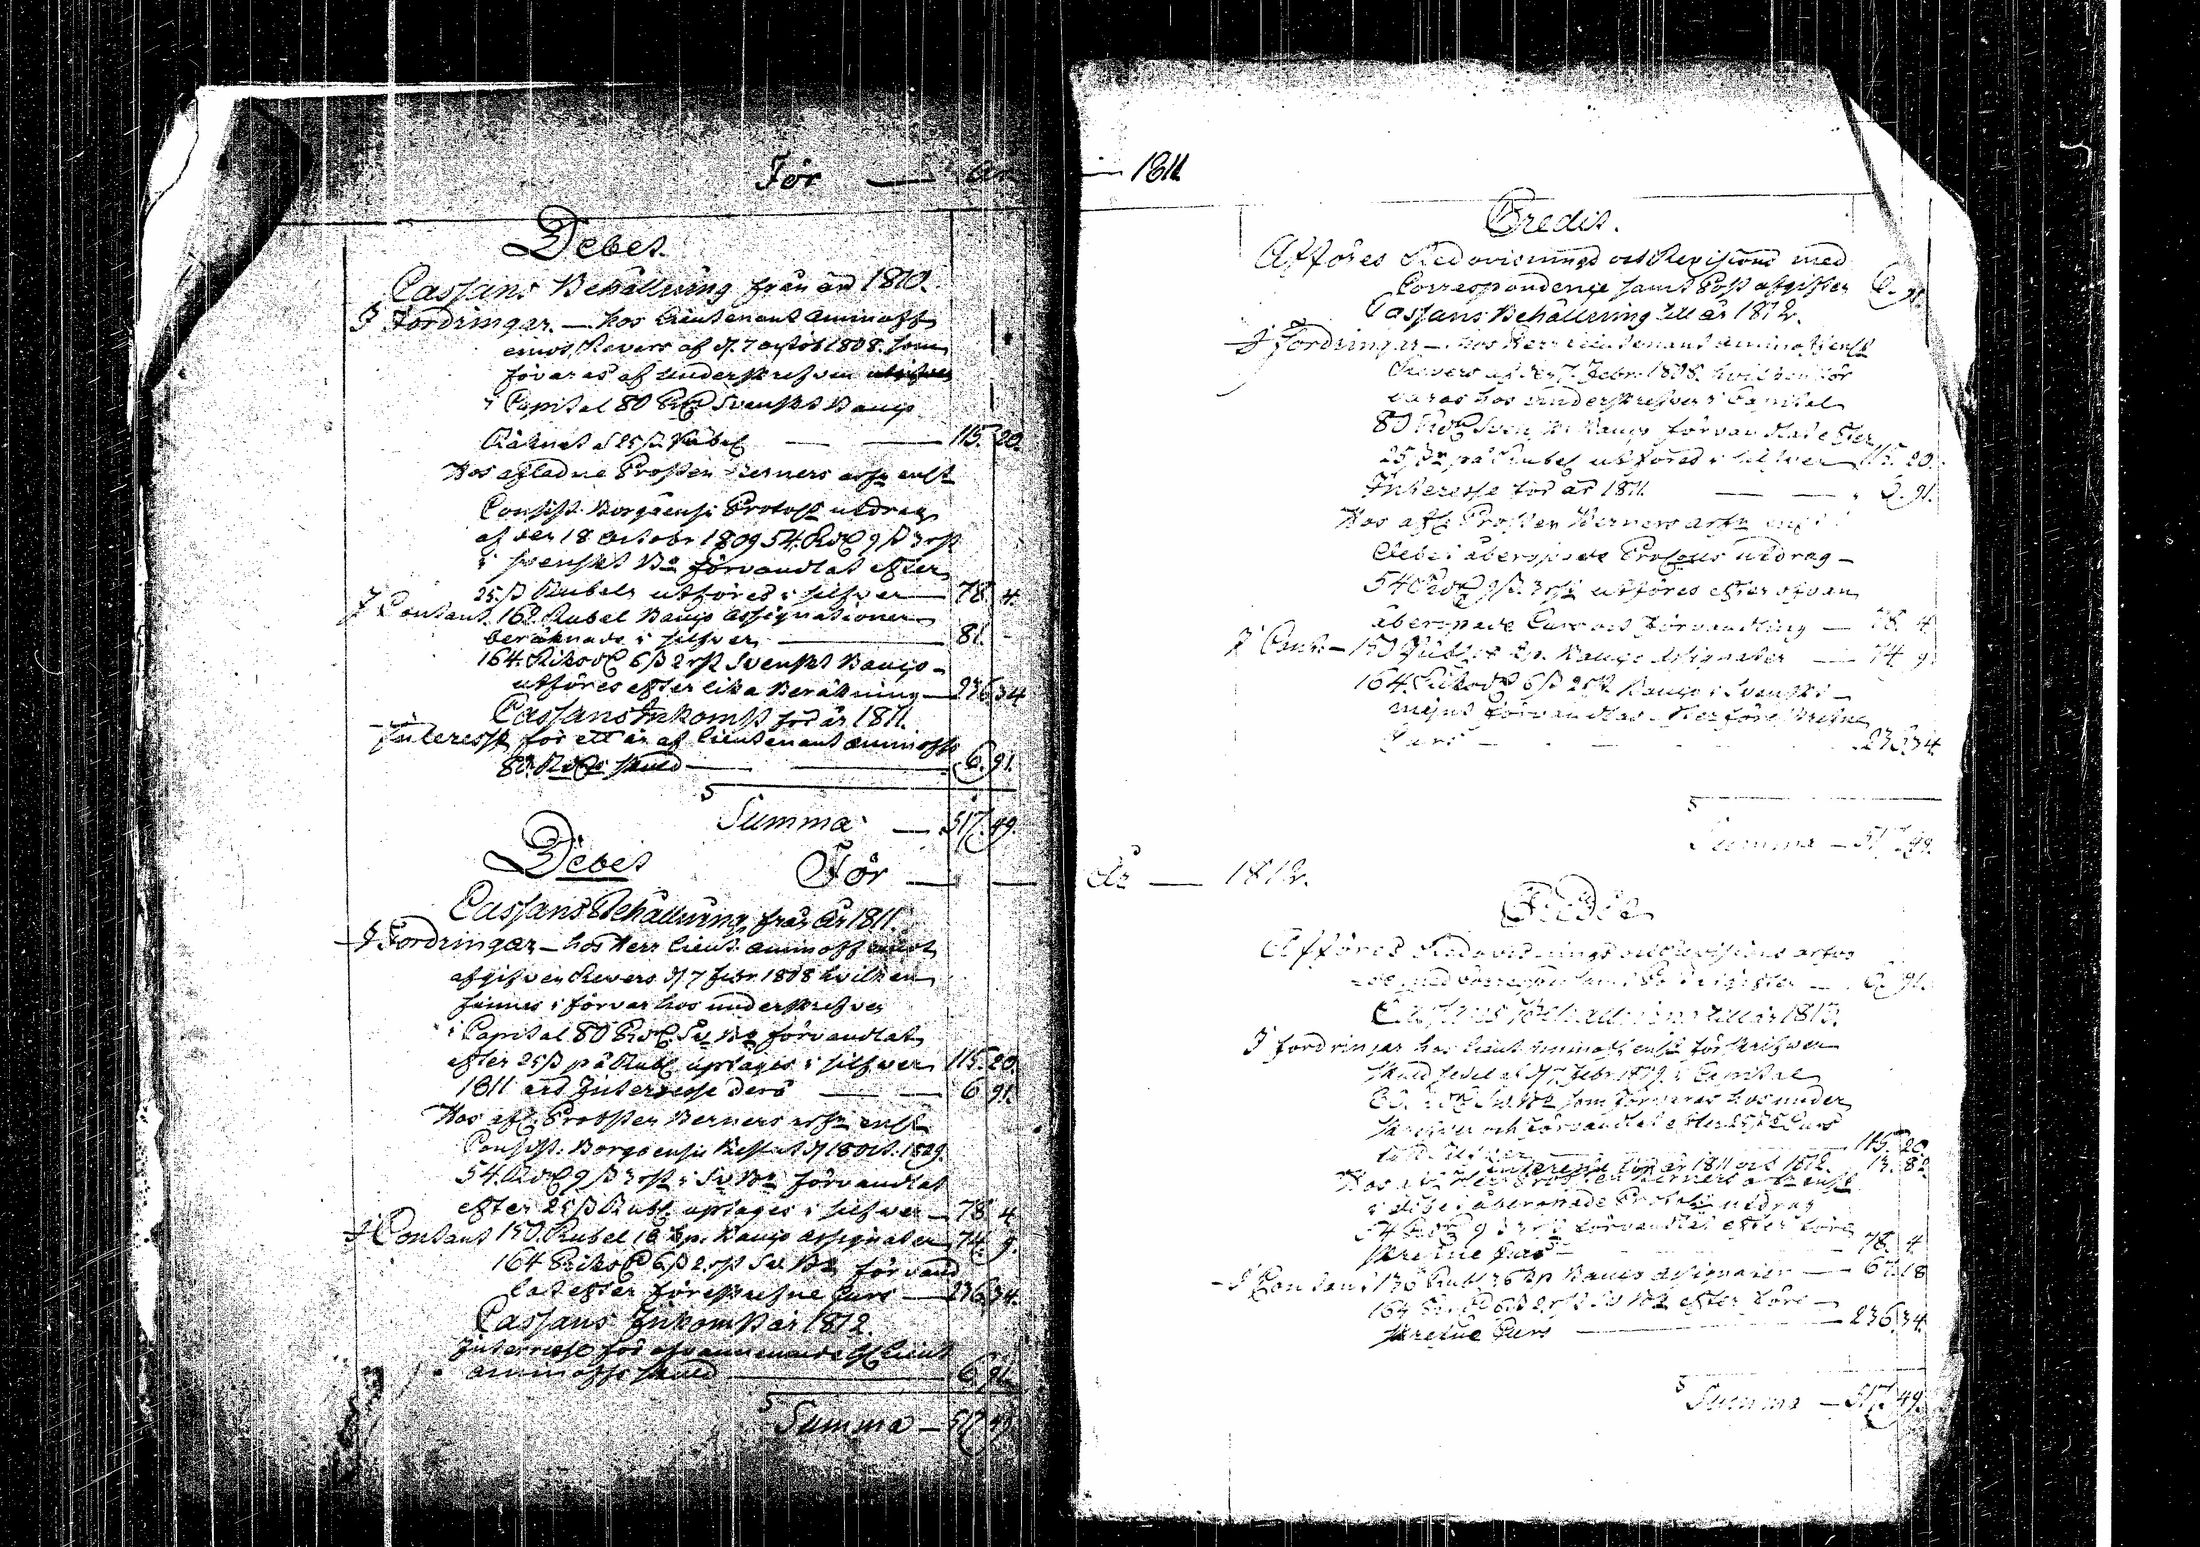 För — År — 1811
Debet.
Cassans Behållning från år 1810.
I Fordringar. — hos Lieutenant Aminoff
Revers af d. 7 1808. som
förvaras af underskrefven
i Capital 80 Rd Svenskt Banco
Räknat á 25 ß Rubel — — 115. 20.
Hos aflidne Prosten Berners arfv. enl.
Consist. Borgoensis Protoc. utdrag
af den 18 October 1809 54. Rd 9 ß 3 rst
i Svenskt Bo förvandlat efter
25. ß Rubeln utföres i silfver — 78. 4.
I Contant. 162. Rubel Banco Assignationer
beräknade i silfver — 81. -
164. Riksd 6 ß 2 rst Svenskt Banco -
utföres efter lika Beräkning — 236 34
Cassans Inkomst för år 1811.
Interesse för ett år af Lieutenant Aminoffs
80. Rd skuld — — 6. 91.
Summa — 517. 49.
Debet För — — År — 1812.
Cassans Behållning från år 1811.
I Fordringar — hos Herr Lieut. Aminoff
afgifven Revers d 7 Febr 1808 hvilken
finnes i förvar hos underskrefven
i Capital 80 Rd Sv. Bo förvandlat
efter 25 ß på Rubl. uptages i silfver 115. 20.
1811 års Interesse derå — — 6. 91.
Hos afl. Prosten Berners arfv. enl.
Consist. Borgoensis d 18 Oct. 1809.
54. Rd 9 ß 3 rst i Sv. Bo förvandlat
efter 25 ß Rubl. uptages i silfver — 78. 4
I Contant 150. Rubel 18 Kp. Banco Assignater 74. 9.
164 Riksd 6 ß 2 rst Sv. Bo förvand
lat efter föreskrefne Curs — 236. 34.
Cassans Inkomst år 1812.
Interesse för ofvannämnde Lieut
Aminoffs skuld — 6. 91.
Summa — 517. 49
Credit.
Afföres Redovisnings och Revisions med
Correspondence samt Post afgifter 6. 91.
Cassans Behållning till år 1812.
I Fordringar — hos Herr Lieutenant Aminoff enl.
Revers af den 7. Febr. 1808. hvilken för
varas hos underskrefven i Capital
80 Rd Svenskt Banco förvandlade efter
25 ß på Rubel utföres i silfver 115. 20.
Interesse för år 1811. — — 6. 91.
Hos afl. Prosten Berners arfv. enl.
åberopade Protocolls utdrag —
54 Rd 9 ß. 3 rst utföres efter ofvan
åberopade Curs och förvandling — 78. 4
I Cont. — 150 Rubl 18 Kp. Banco Assignater — 74. 9
164. Riksd 6 ß 2 rst Banco i Svenskt
mynt förvandlas efter föreskrefne
Curs — 236. 34.
Summa — 517. 49.
Credit
Afföres Redovisnings och Revisions
med Corresp. samt 6. 91.
Cassans Behållning till år 1813.
I fordringar hos Lieut. Aminoff enl. förskrifven
skuldsedel af d 7. Febr. i Capital
80. Rd Sv. Bo som förvaras hos under
skrifven och förvandlat efter 25 ß Curs
115. 20.
Interesse för år 1811 och 1812. 13. 82
Hos Prosten Berners arfv. enl.
åberopade Protoc. utdrag
54 Rd 9 ß 3 rst förvandlat efter före
skrefne Curs — 78. 4
I Contant 136 Rubl 36 Kp Banco Assignater — 67. 18
164 Rd 6 ß 2 rst Sv. Bo efter före —
skrefne Curs — 236. 34.
Summa — 517. 49.